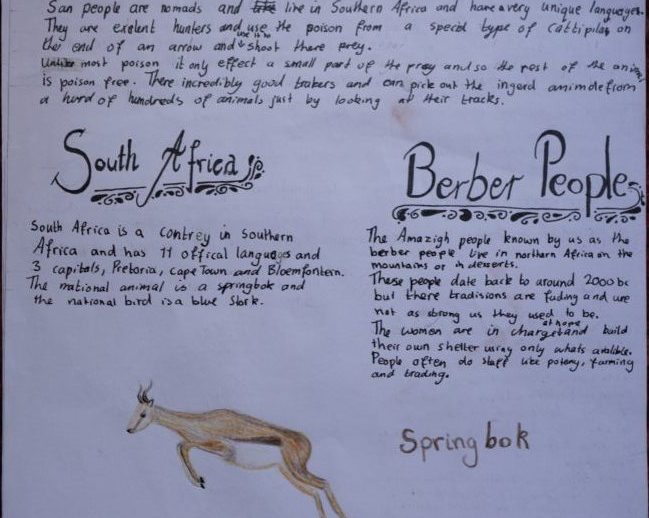 San people are nomads and live in Southern Africa and have a very unique languages.
They are exelent hunters and use the poison from a specil type of Cattipilar on
the end of an arrow and use it to shoot there prey.
Unlike most poison it only effect a small part of the prey and so the rest of the animal
is poison free. There incredibly good trakers and can pick out the ingerd animale from
a hurd of hundreds of animals just by looking at their tracks.
South Africa
South Africa is a contrey in southern
Africa and has 11 offical languages and
3 capitals, Pretoria, cape Town and Bloemfontern.
The national animal is a springbok and
the national bird is a blue Stork.
Berber People
The Amazigh people known by us as the
berber people live in northern Africa on the
mountains or in desserts.
These people date back to around 2000 bc
but there tradisions are fading and are
not as strong as they used to be.
The women are in charge at home and build
their own shelter using only whats avalible.
People often do stuff like potery, farming
and trading.
Springbok